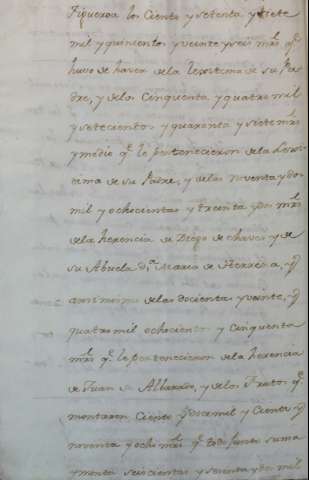 Figueroa los Ciento y setenta y siete
mil y quinientos y veinte y seis mrs. q.
huvo de haver de la lexitima de su Pa
dre, y de los Cinquenta y quatro mil
y setecientos y quarenta y siete mrs.
y medio q. le pertenecieron de la Lexi
tima de su Padre, y de las noventa y dos
mil y ochocientas y treinta y dos mrs.
de la herencia de Diego de chaves y de
su Abuela d.a Maria de Herrera, y
asimismo de las docientas y veinte, y
quatro mil ochociento y cinquenta
mrs. q. le pertenecieron de la herencia
de Juan de Albarado, y de los frutos q.
montaron, Ciento y doce mil y Ciento y
noventa y ocho mrs. q. todo junto suma
y monta seiscientas y sesenta y dos mil